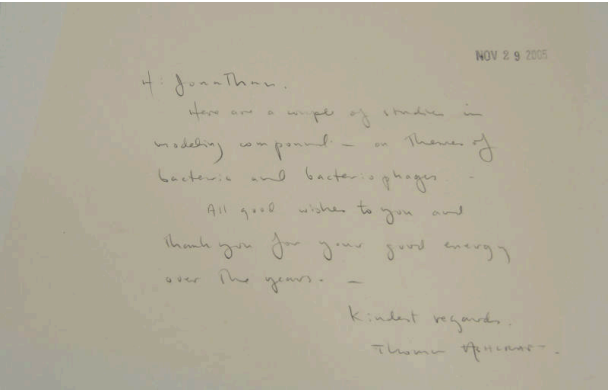 NOV 29 2005
Hi Jonathan.
Here are a couple of studies in
modeling compound — on Themes of
bacteria and bacteriophages.
All good wishes to you and
Thank you for your good energy
over The years. —
Kindest regards.
Thomas